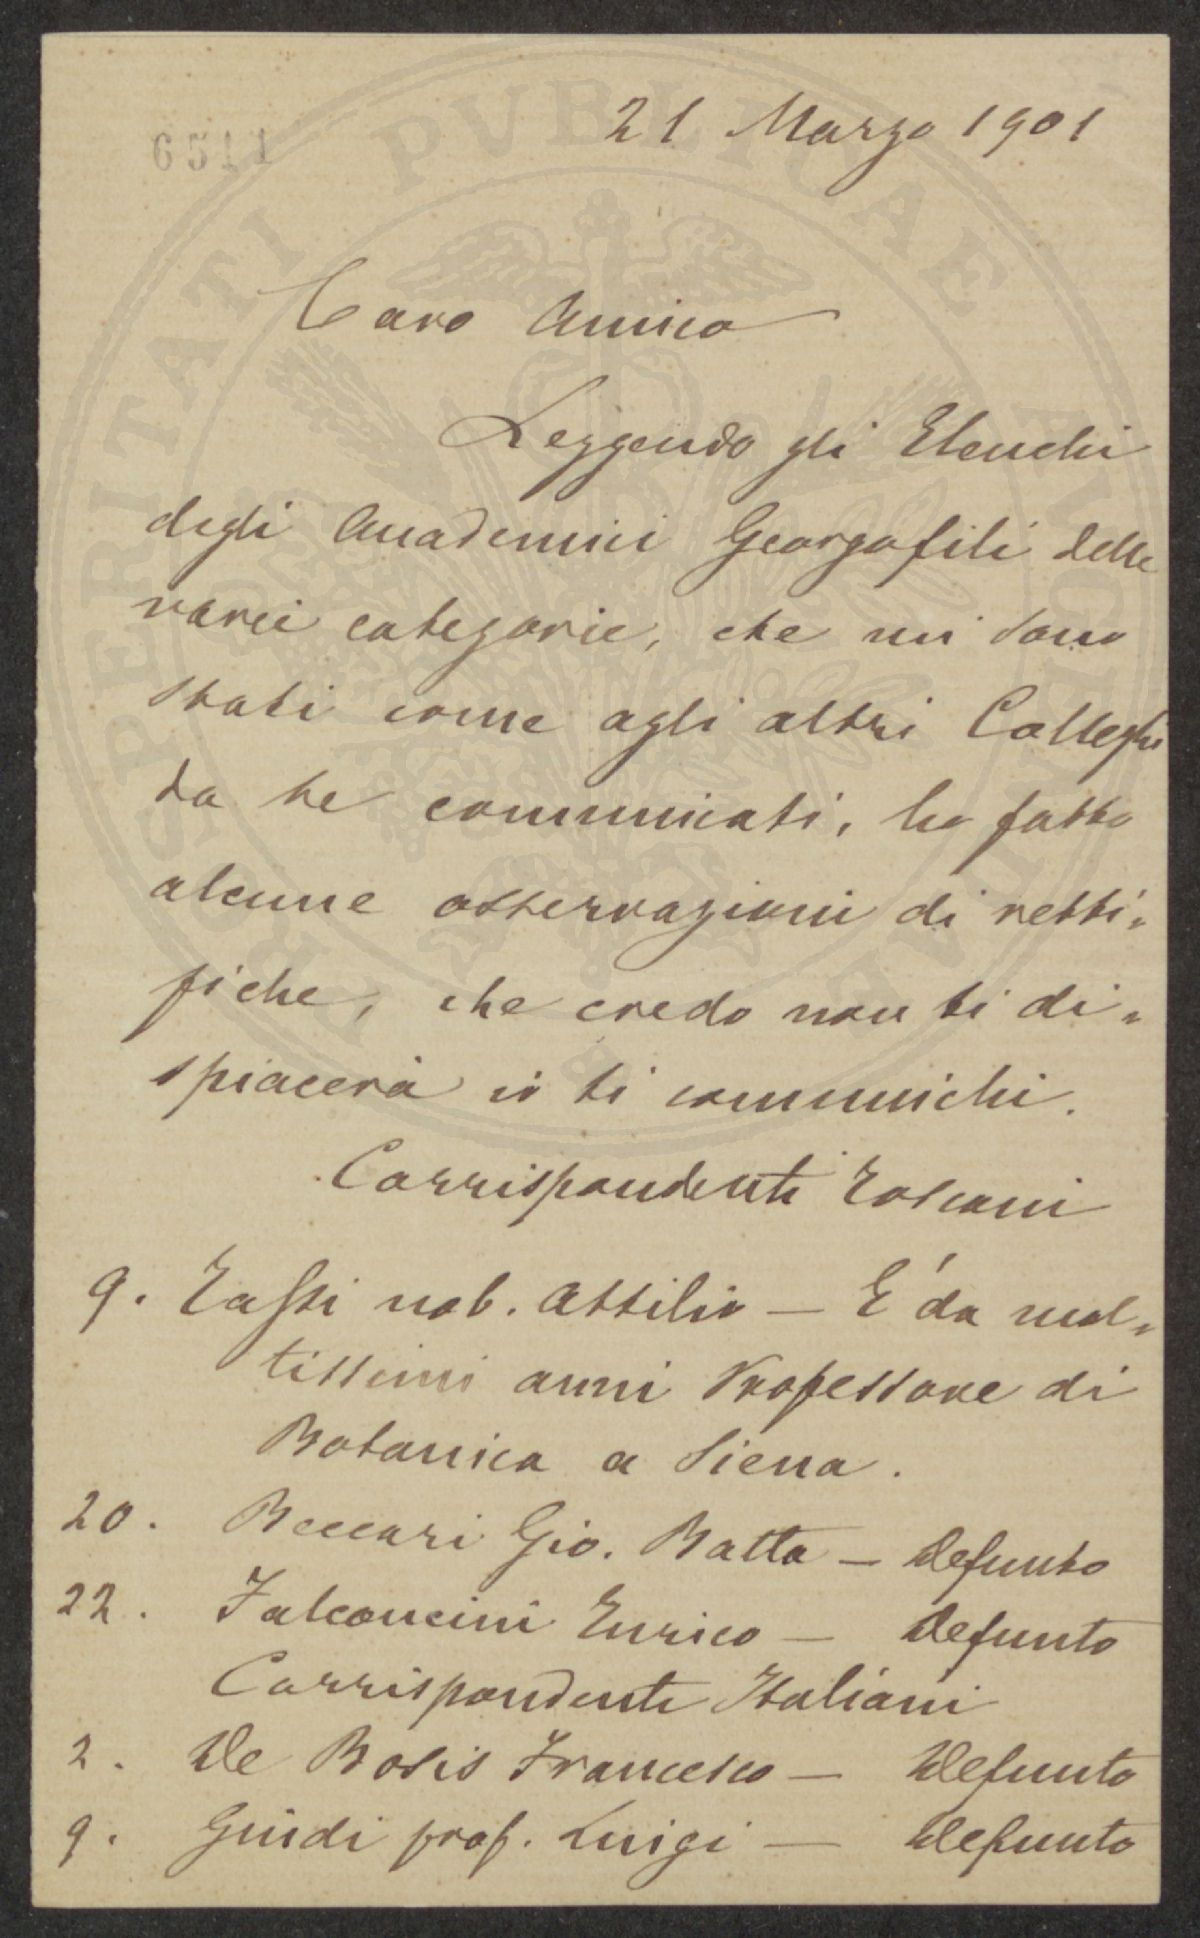 6511
21 Marzo 1901
Caro Amico
Leggendo gli Elenchi
degli Accademici Georgofili delle
varie categorie, che mi sono
stati come agli altri Colleghi
da te comunicati, ho fatto
alcune osservazioni di retti=
fiche, che credo non ti di=
spiacerà io ti comunichi.
Corrispondenti Toscani
9. Tassi nob. Attilio — È da mol=
tissimi anni Professore di
Botanica a Siena.
20. Beccari Gio. Batta — Defunto
22. Falconcini Enrico — Defunto
Corrispondenti Italiani
2. De Bosis Francesco — Defunto
9. Guidi prof. Luigi — Defunto
PROSPERITATI PVBLICAE AVGENDAE